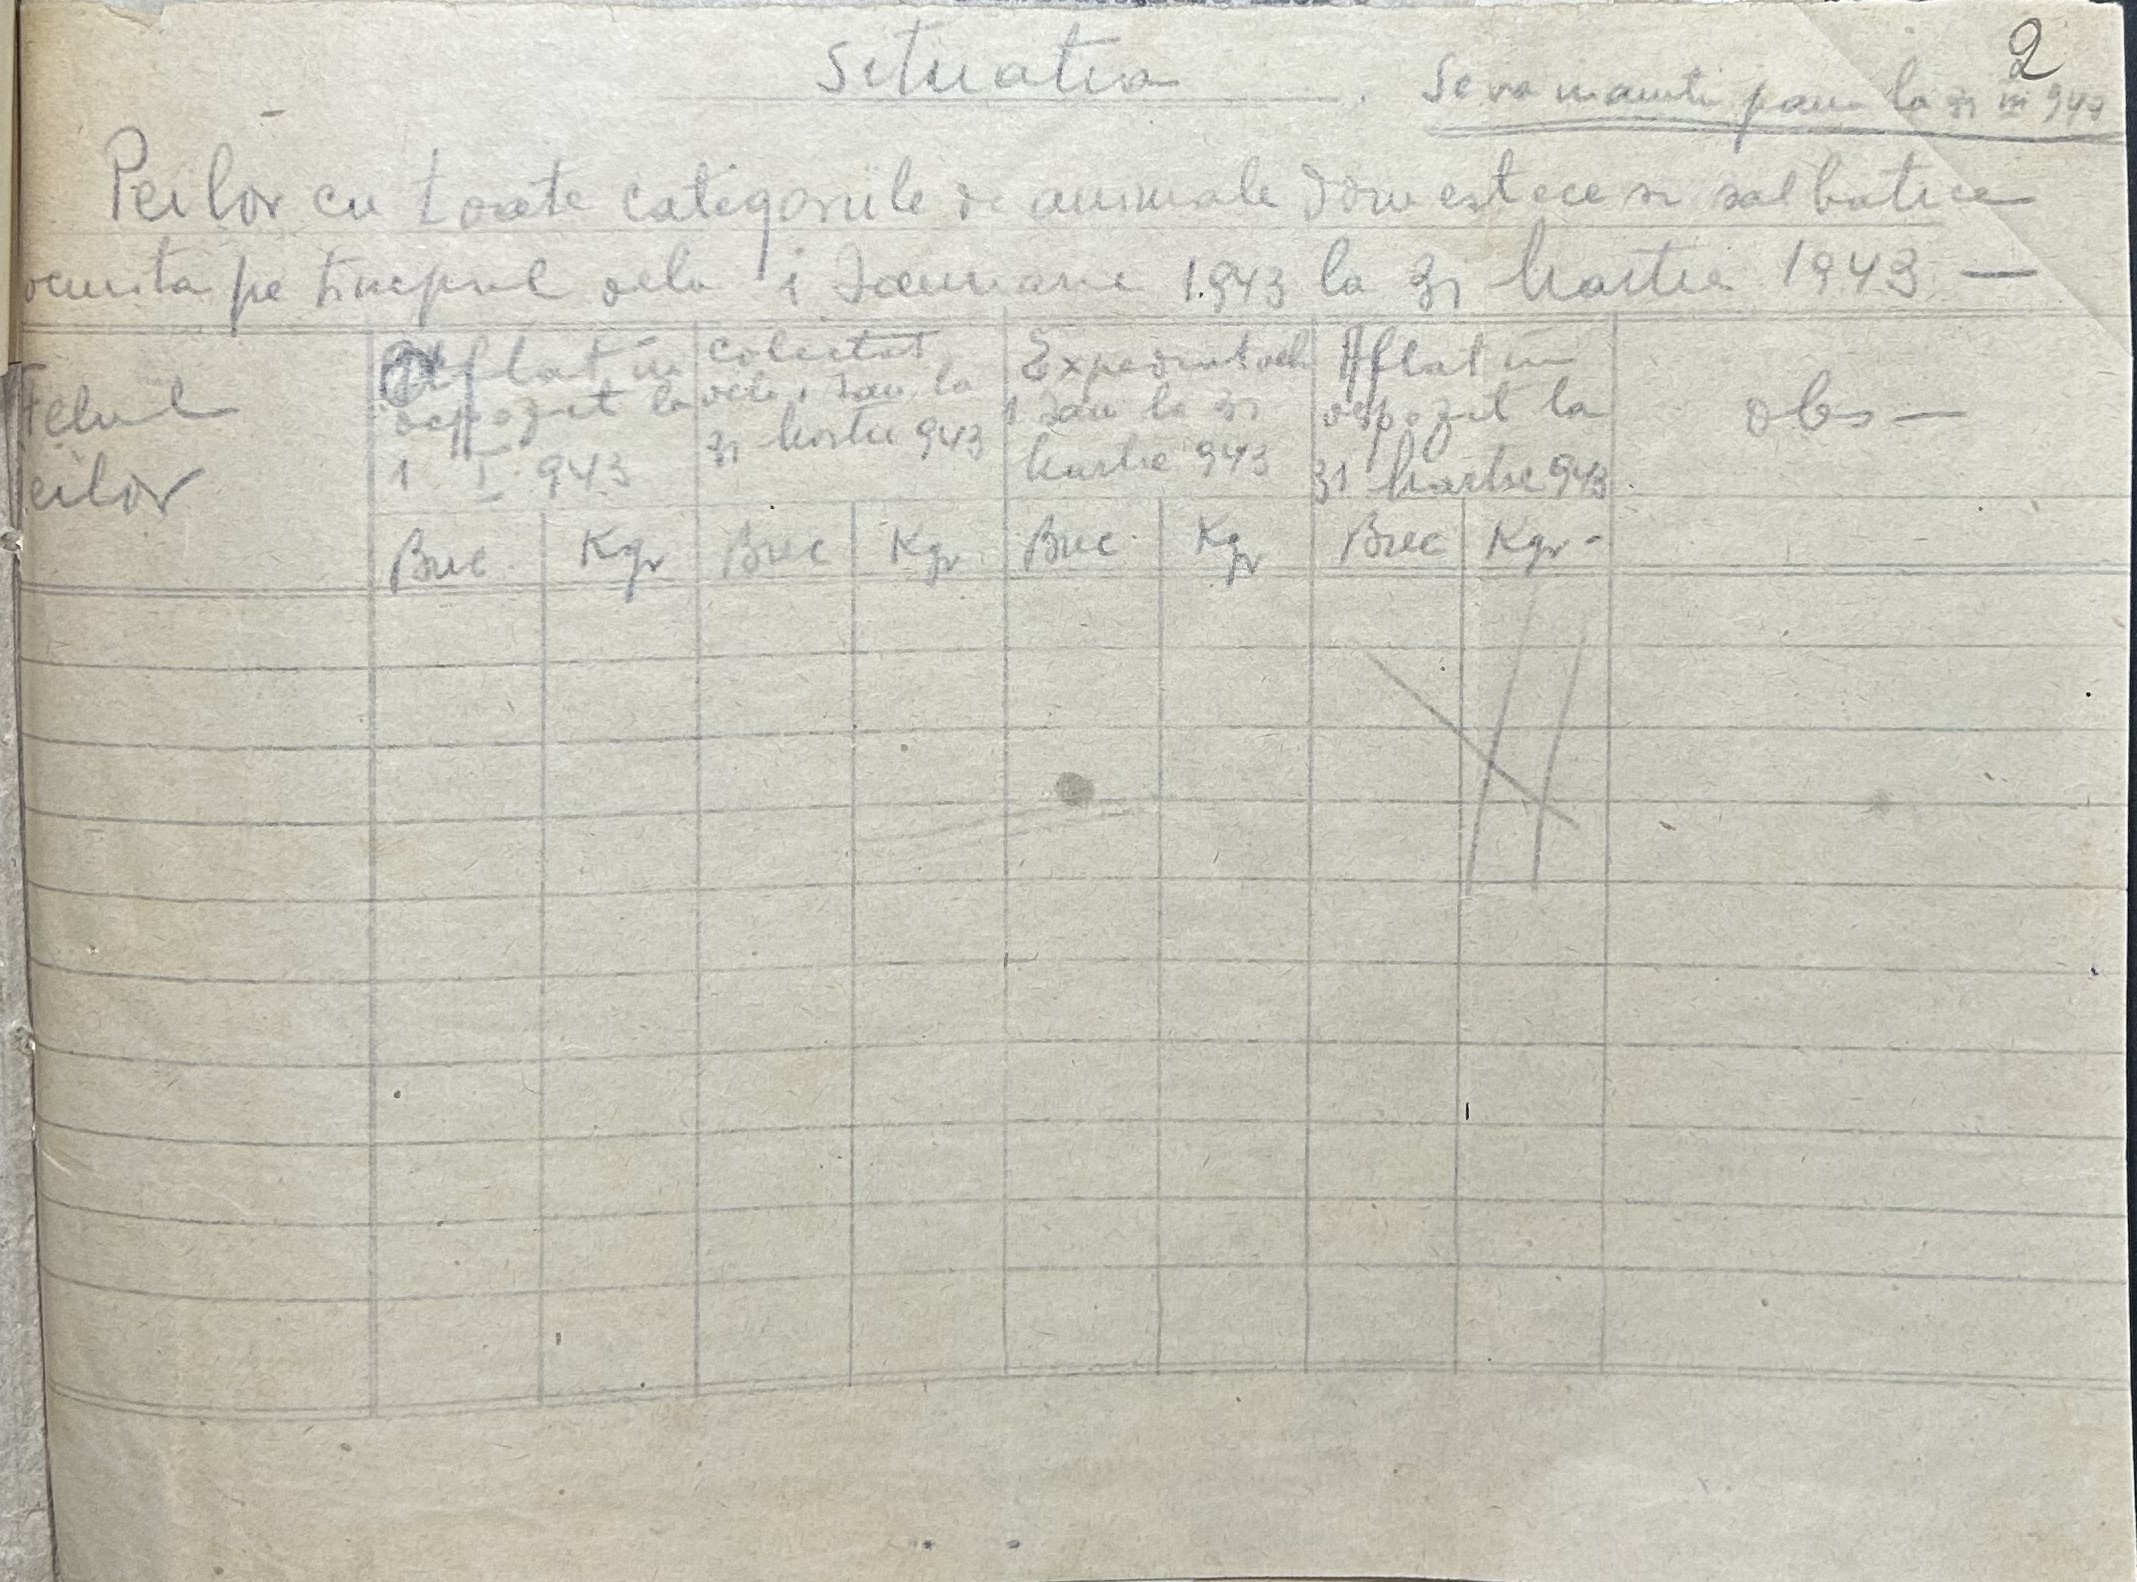 2
Situatia
Se va inainta pana la 31 III 943
Peilor cu toate categoriile de animale domestece si salbatice
pe timpul dela 1 Ianuarie 1943 la 31 Martie 1943 —
Felul
eilor
Aflat in
depozit la
1 I 943
Colectat
dela 1 Ian. la
31 Martie 943
Expediat dela
1 Ian la 31
Martie 943
Aflat in
depozit la
31 Martie 943
Obs —
Buc Kgr Buc Kgr Buc Kgr Buc Kgr -